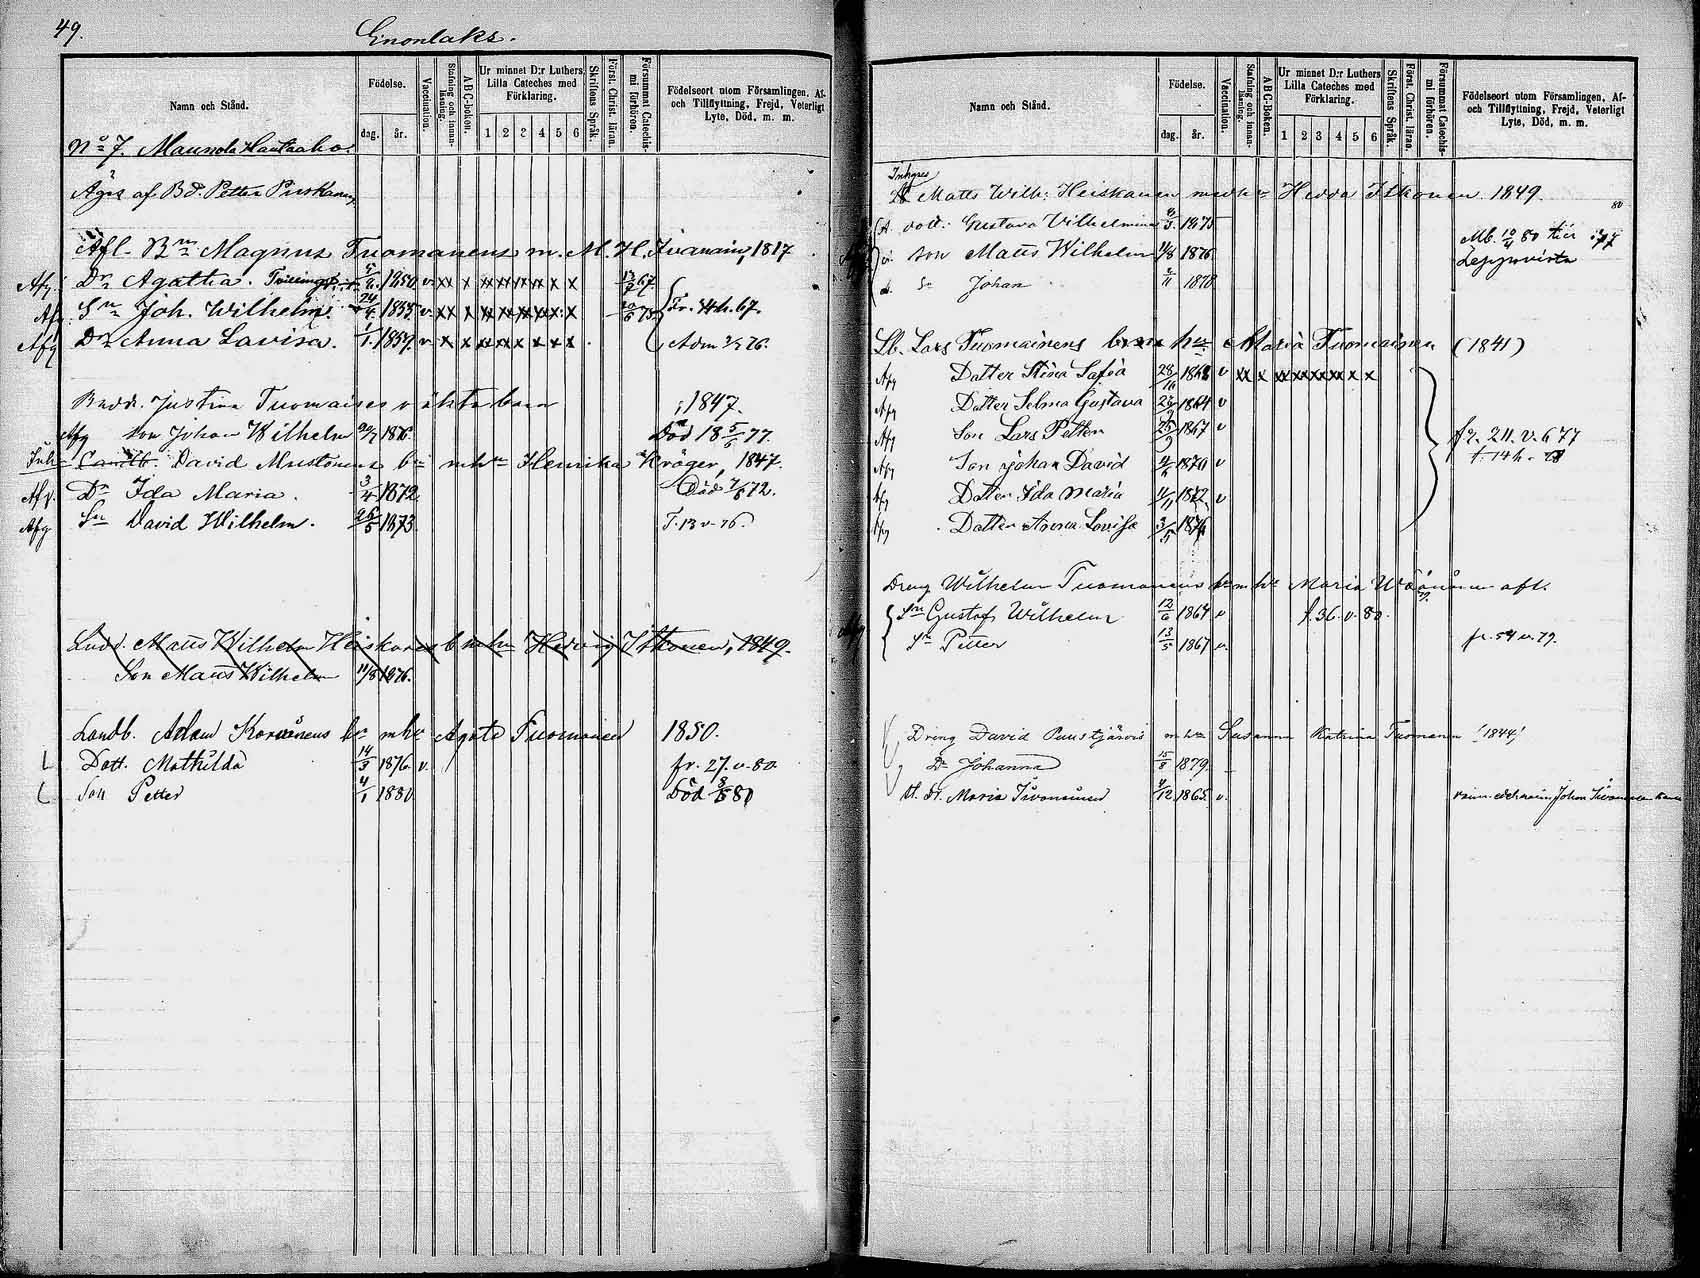 49.
Enonlaks.
Namn och Stånd.
Födelse.
dag. år.
Vaccination.
Stafning och innanläsning.
A B C-boken.
Ur minnet D:r Luthers Lilla Cateches med Förklaring.
1 2 3 4 5 6
Skriftens Språk.
Först. Christ. läran.
Försummat Catechismi förhören.
Födelseort utom Församlingen, Af- och Tillflyttning, Frejd, Veterligt Lyte, Död, m. m.
No 7. Maunola Hautaaho.
Äges af Bd. Petter Puskanen
Afl. Bn Magnus Tuomanens m. M. H. Ivanain, 1817
Afg. Dr Agatha. 1850 v. xx x xx xx x x x x 67
Afg Sn Joh. Wilhelm. 24/4 1855 v. x x x xx x x x x x 75 Fr. 44h. 67.
Afg Dr Anna Lavisa. 1/1 1859 v x x x xx x x x x x Adm 76.
Justina Tuomaises oäkta barn 1847.
Afg son Johan Wilhelm 1876. Död 18 5/5 77.
Landb. David Mustonens bn mhu Henrika Kröger, 1847.
Afg. Dr Ida Maria. 3/4 1872 Död 72.
Afg Sn David Wilhelm. 26/5 1873 T. 13 v. 76.
Matts Wilhelm Heiskanens b mhu Hedvig Itkonen, 1849.
Son Matts Wilhelm 11/8 1876.
Landb. Adam Korvanens bn mhu Agata Tuomainen 1850.
Dott. Mathilda 14/9 1876. v. fr. 27. v. 80
Son Petter 4/1 1880. Död 8/5 80
Namn och Stånd.
Födelse.
dag. år.
Vaccination.
Stafning och innanläsning.
A B C-Boken.
Ur minnet D:r Luthers Lilla Cateches med Förklaring.
1 2 3 4 5 6
Skriftens Språk.
Först. Christ. läran.
Försummat Catechismi förhören.
Födelseort utom Församlingen, Af- och Tillflyttning, Frejd, Veterligt Lyte, Död, m. m.
Inhyses
Matts Wilh: Heiskanen med hu Hedda Itkonen 1849.
dott: Gustava Vilhelmina 1875
son Matts Wilhelm 11/8 1876 Mb. 10/4 80 till Leppävirta
Sn Johan 1878
Lb. Lars Tuomainens barn hu Maria Tuomainen (1841)
Afg Dotter Stina Sofia 28/10 1862 v xx x xx xx x x x x x
Afg Dotter Selma Gustava 1864 v
Afg Son Lars Petter 1867 v fr. 211. v. 677
Afg Son Johan David 1870 v
Afg Dotter Ida Maria 1872 v
Afg Dotter Anna Lovisa 3/5 1876
Dreng Wilhelm Tuomanens bn m hu Maria afl.
Sn Gustaf Wilhelm 12/6 1864 v f. 36. v. 80.
Sn Petter 13/5 1867 v. fr. 54 v. 79.
Dreng David Puustjärvis m hu Susanna Katrina Tuomanen (1844)
Dr Johanna 15/8 1879.
Maria Iivonainen 4/12 1865 v.